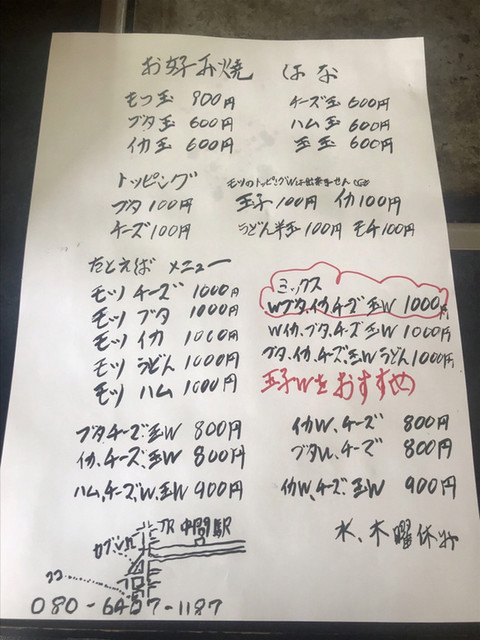 お好み焼 はな
モツ玉 900円
ブタ玉 600円
イカ玉 600円
チーズ玉 600円
ハム玉 600円
玉玉 600円
トッピング モツのトッピングWは出来ません
ブタ 100円 玉子 100円 イカ 100円
チーズ 100円 うどん半玉 100円 モチ 100円
たとえば メニュー
モツ チーズ 1000円
モツ ブタ 1000円
モツ イカ 1000円
モツ うどん 1000円
モツ ハム 1000円
ミックス
Wブタ、イカ、チーズ、玉W 1000円
Wイカ、ブタ、チーズ、玉W 1000円
ブタ、イカ、チーズ、玉Wうどん1000円
玉子Wをおすすめ
ブタ、チーズ、玉W 800円
イカ、チーズ、玉W 800円
ハム、チーズ、W、玉W 900円
イカW、チーズ 800円
ブタW、チーズ 800円
イカW、チーズ、玉W 900円
水、木曜休み
JR中間駅
セブン
ココ
080-6457-1187